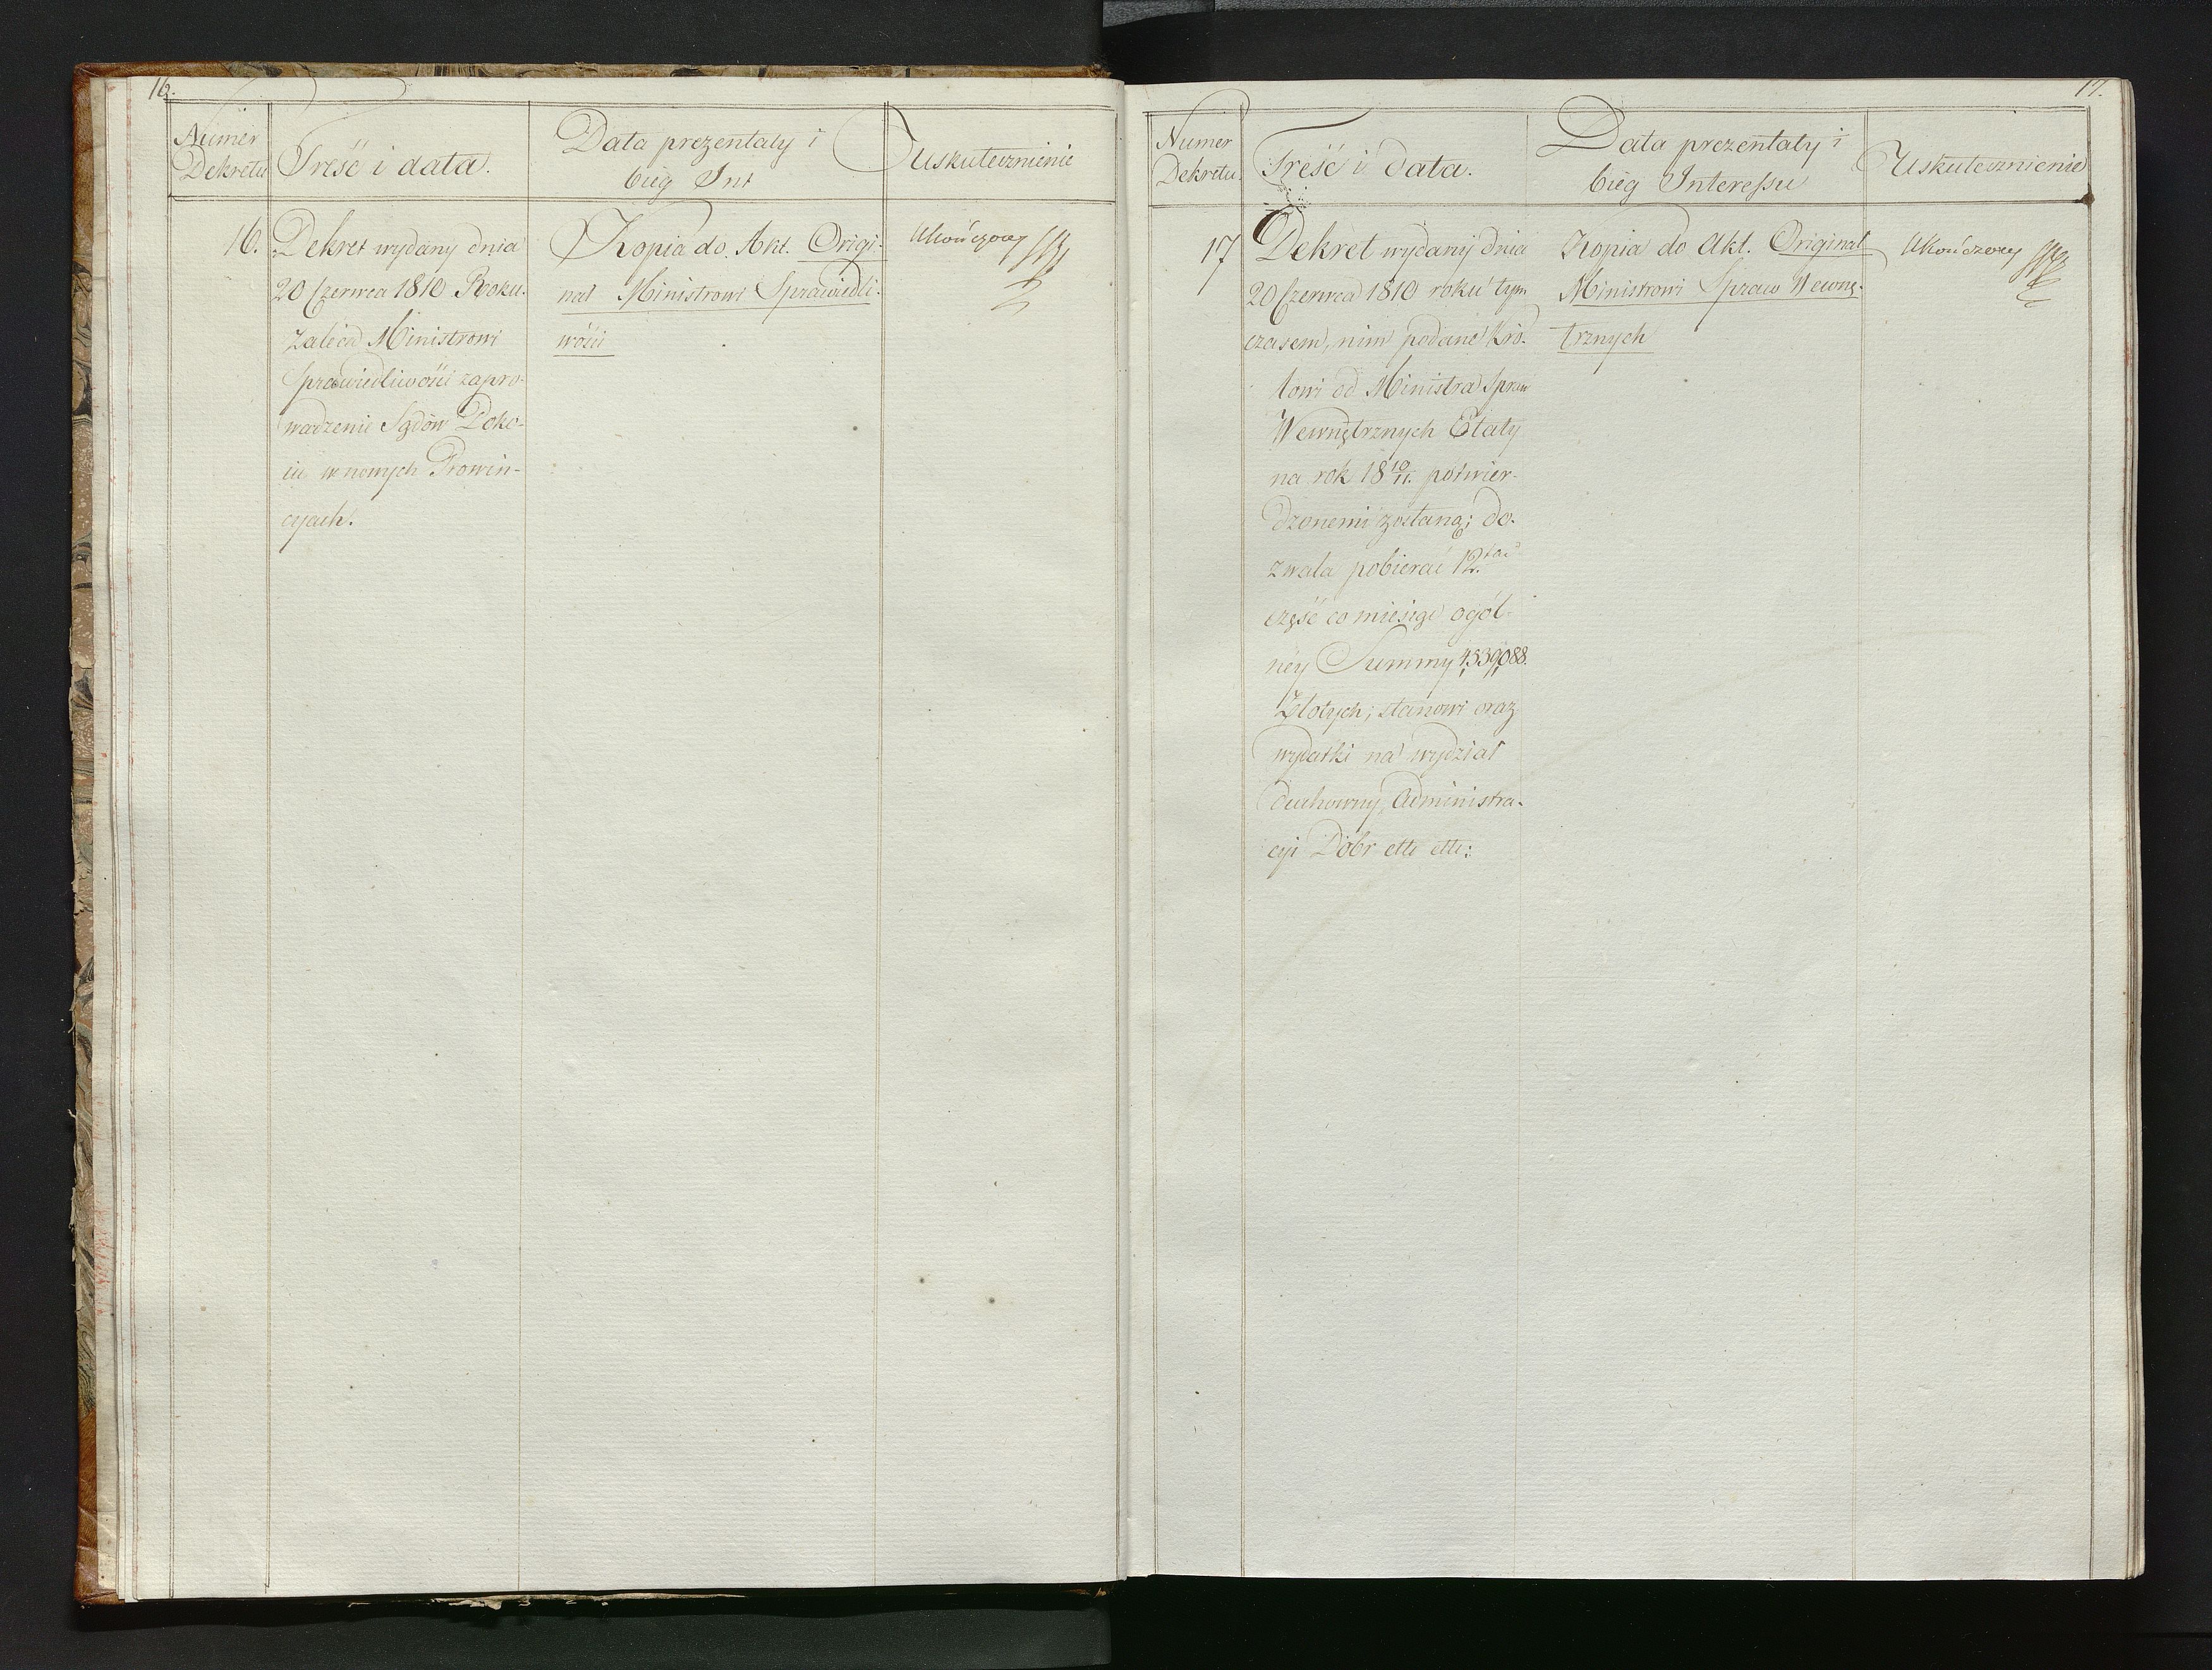 16.
Numer
Dekretu
Treść i data.
Data prezentaty i
bieg Int
Uskutecznienie
16.
Dekret wydany dnia
20 Czerwca 1810 Roku.
zaleca Ministrowi
Sprawiedliwości zapro-
wadzenie Sądów Poko-
iu w nowych Prowin-
cyach.
Kopia do Akt. Origi-
nał Ministrowi Sprawiedli-
wości
Ukończony
17.
Numer
Dekretu.
Treść i data.
Data prezentaty i
bieg Interessu
Uskutecznienie
17
Dekret wydany dnia
20 Czerwca 1810 roku tym
czasem, nim podane Kró-
lowi od Ministra Spraw
Wewnętrznych Etaty
na rok 18 10/11. potwier-
dzonemi zostaną; do-
zwala pobierać 12.tą
część co miesiąc ogól-
ney Summy 4,339,088.
Złotych; stanowi oraz
wydatki na wydział
duchowny, Administra-
cyi Dóbr ettc ettc:
Kopia do Akt. Original
Ministrowi Spraw Wewnę-
trznych
Ukończony